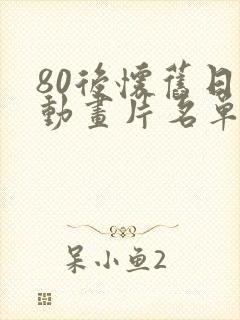 80後懷舊日
動畫片名單
呆小鱼2